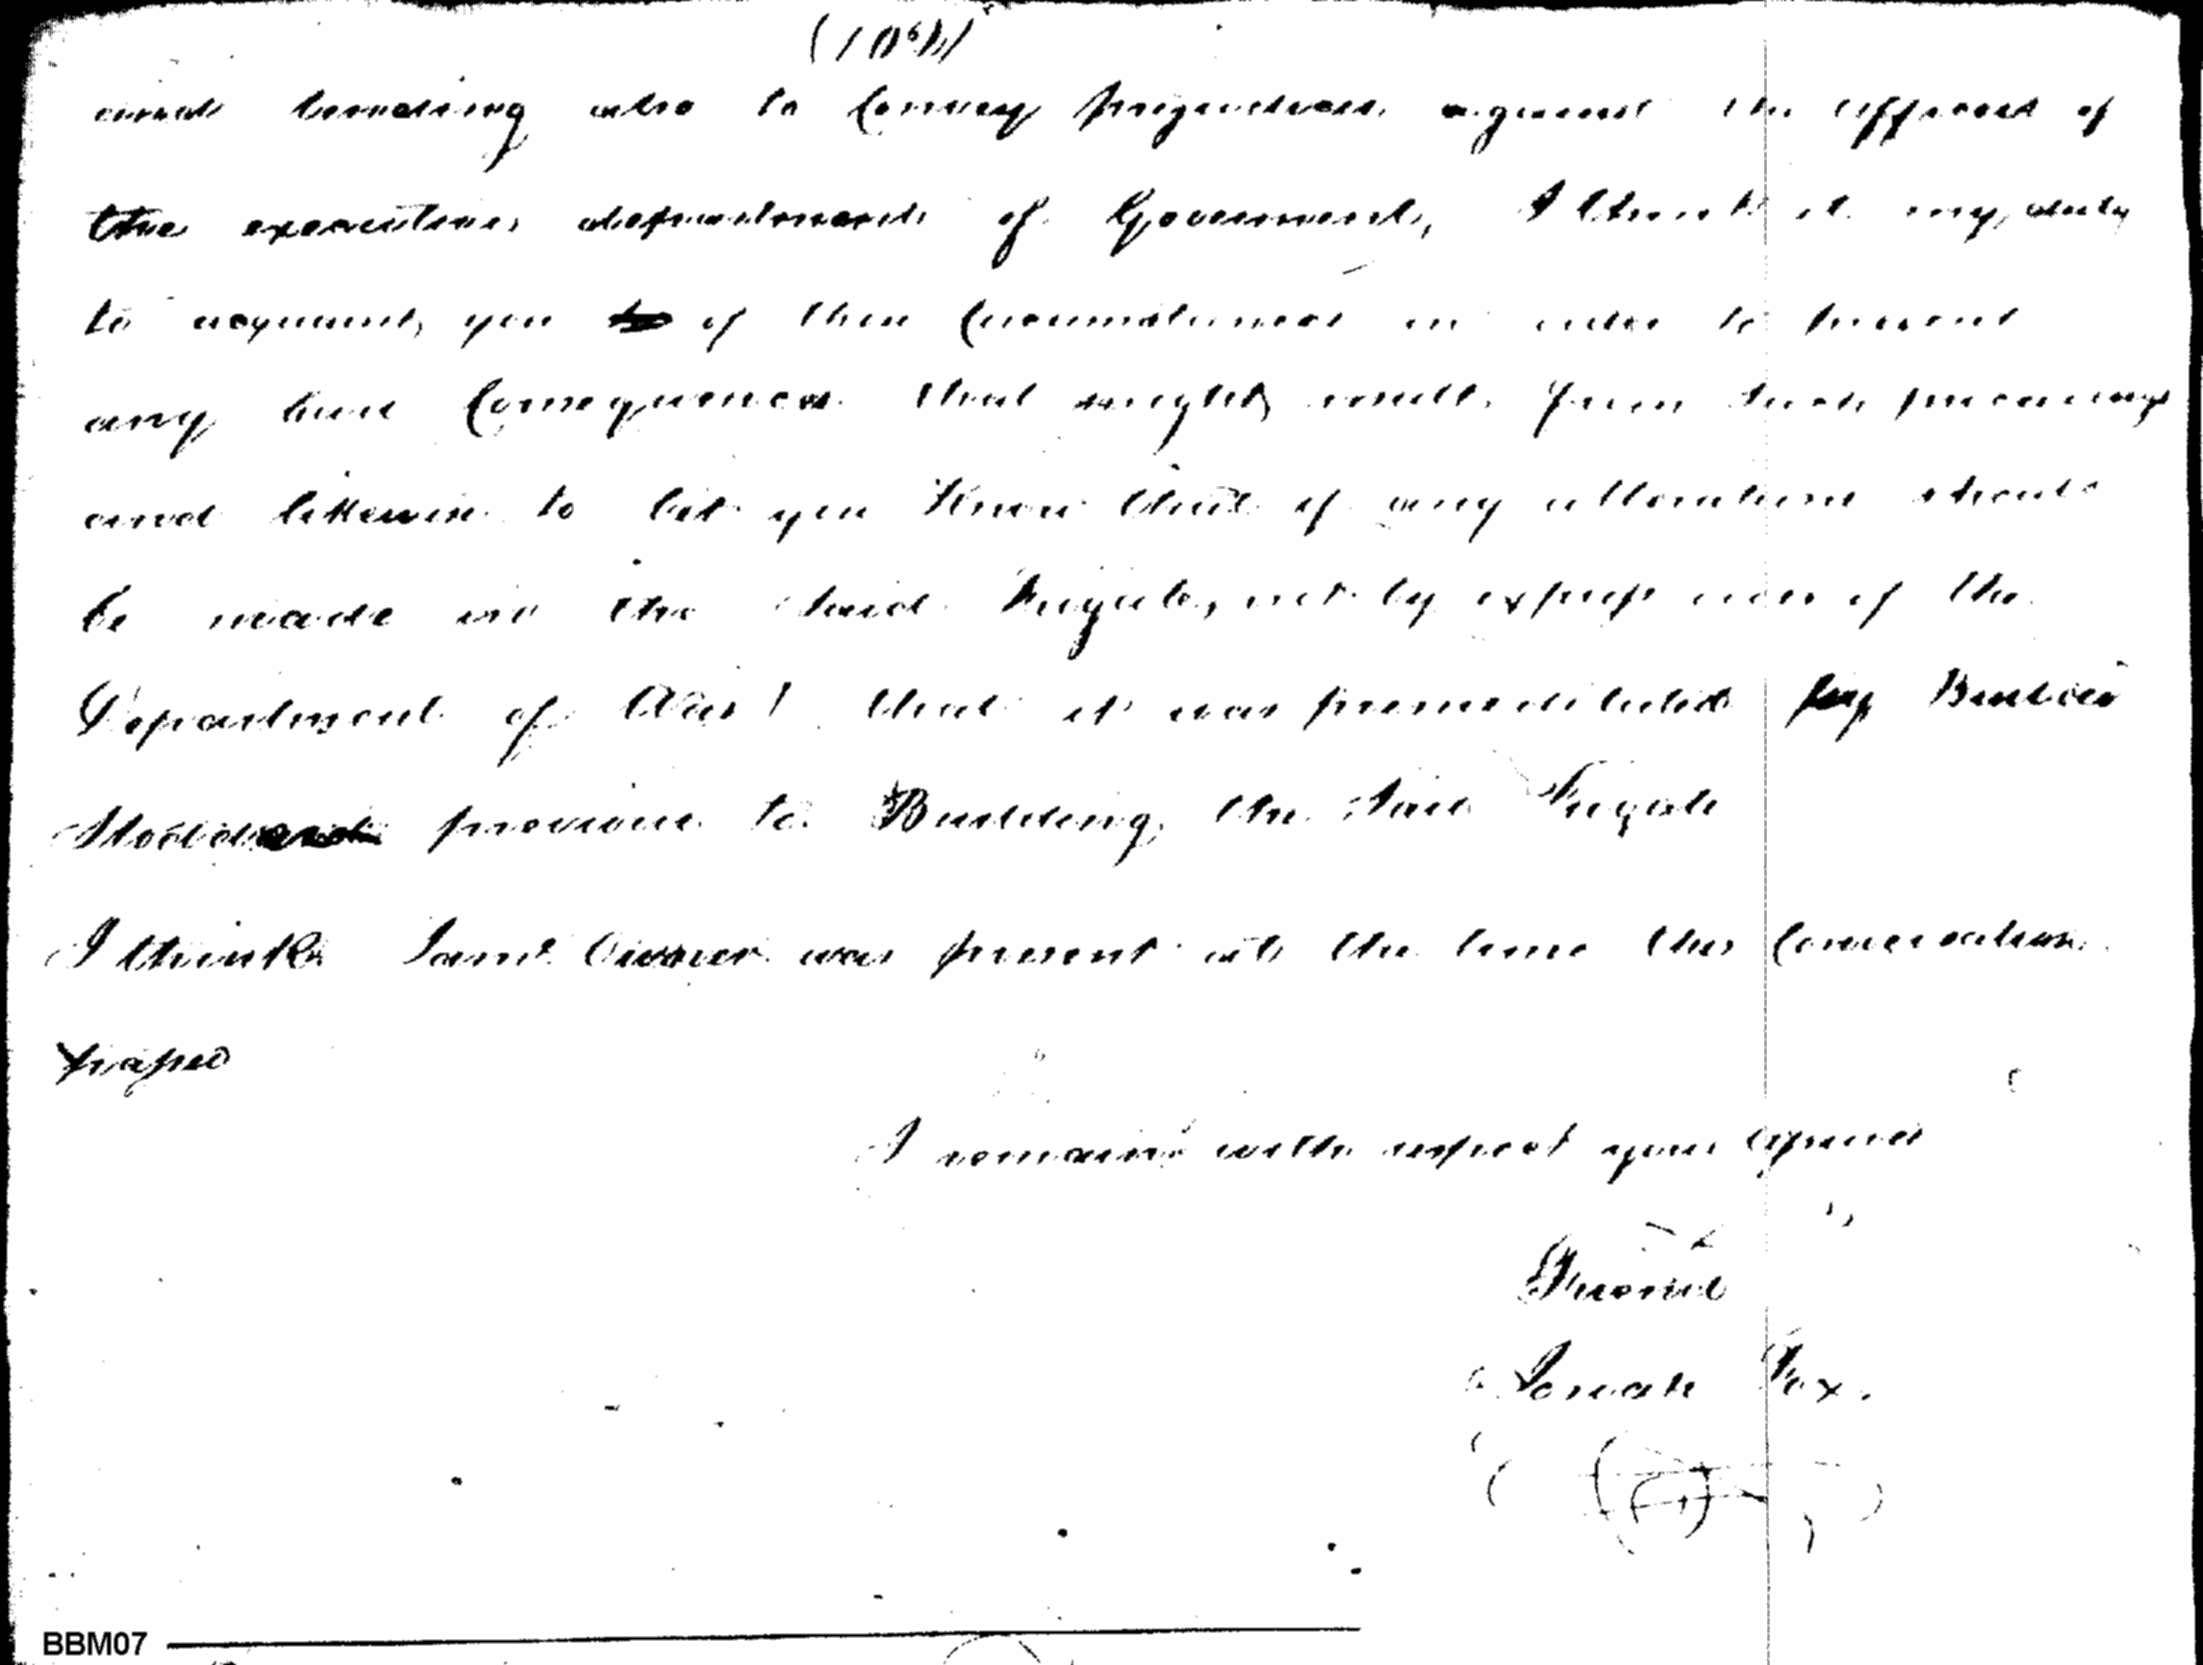 (10th)
and tending also to Convey prejudices against the officers of
the executive department of Government, I think it my duty
to acquaint you of these Circumstances in order to prevent
any bad Consequences that might result from such
and likewise to let you know that if any alteration should
be made in the said Frigate, not by express order of the
Department of War! that it was premeditated by
Stoddard previous to Building the said Frigate
I think Saml was present at the time this Conversation
pasped
I remain with respect your
Friend
Josiah Fox.
BBM07